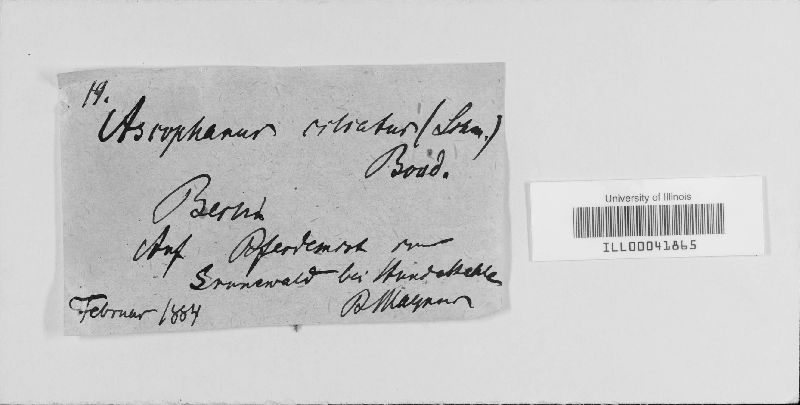 19.
Ascophanus ciliatus (Schm.)
Boud.
Berlin
Auf Pferdemist im
Grunewald bei Hundekehle
Februar 1884
P. Magnus
University of Illinois
ILL00041865